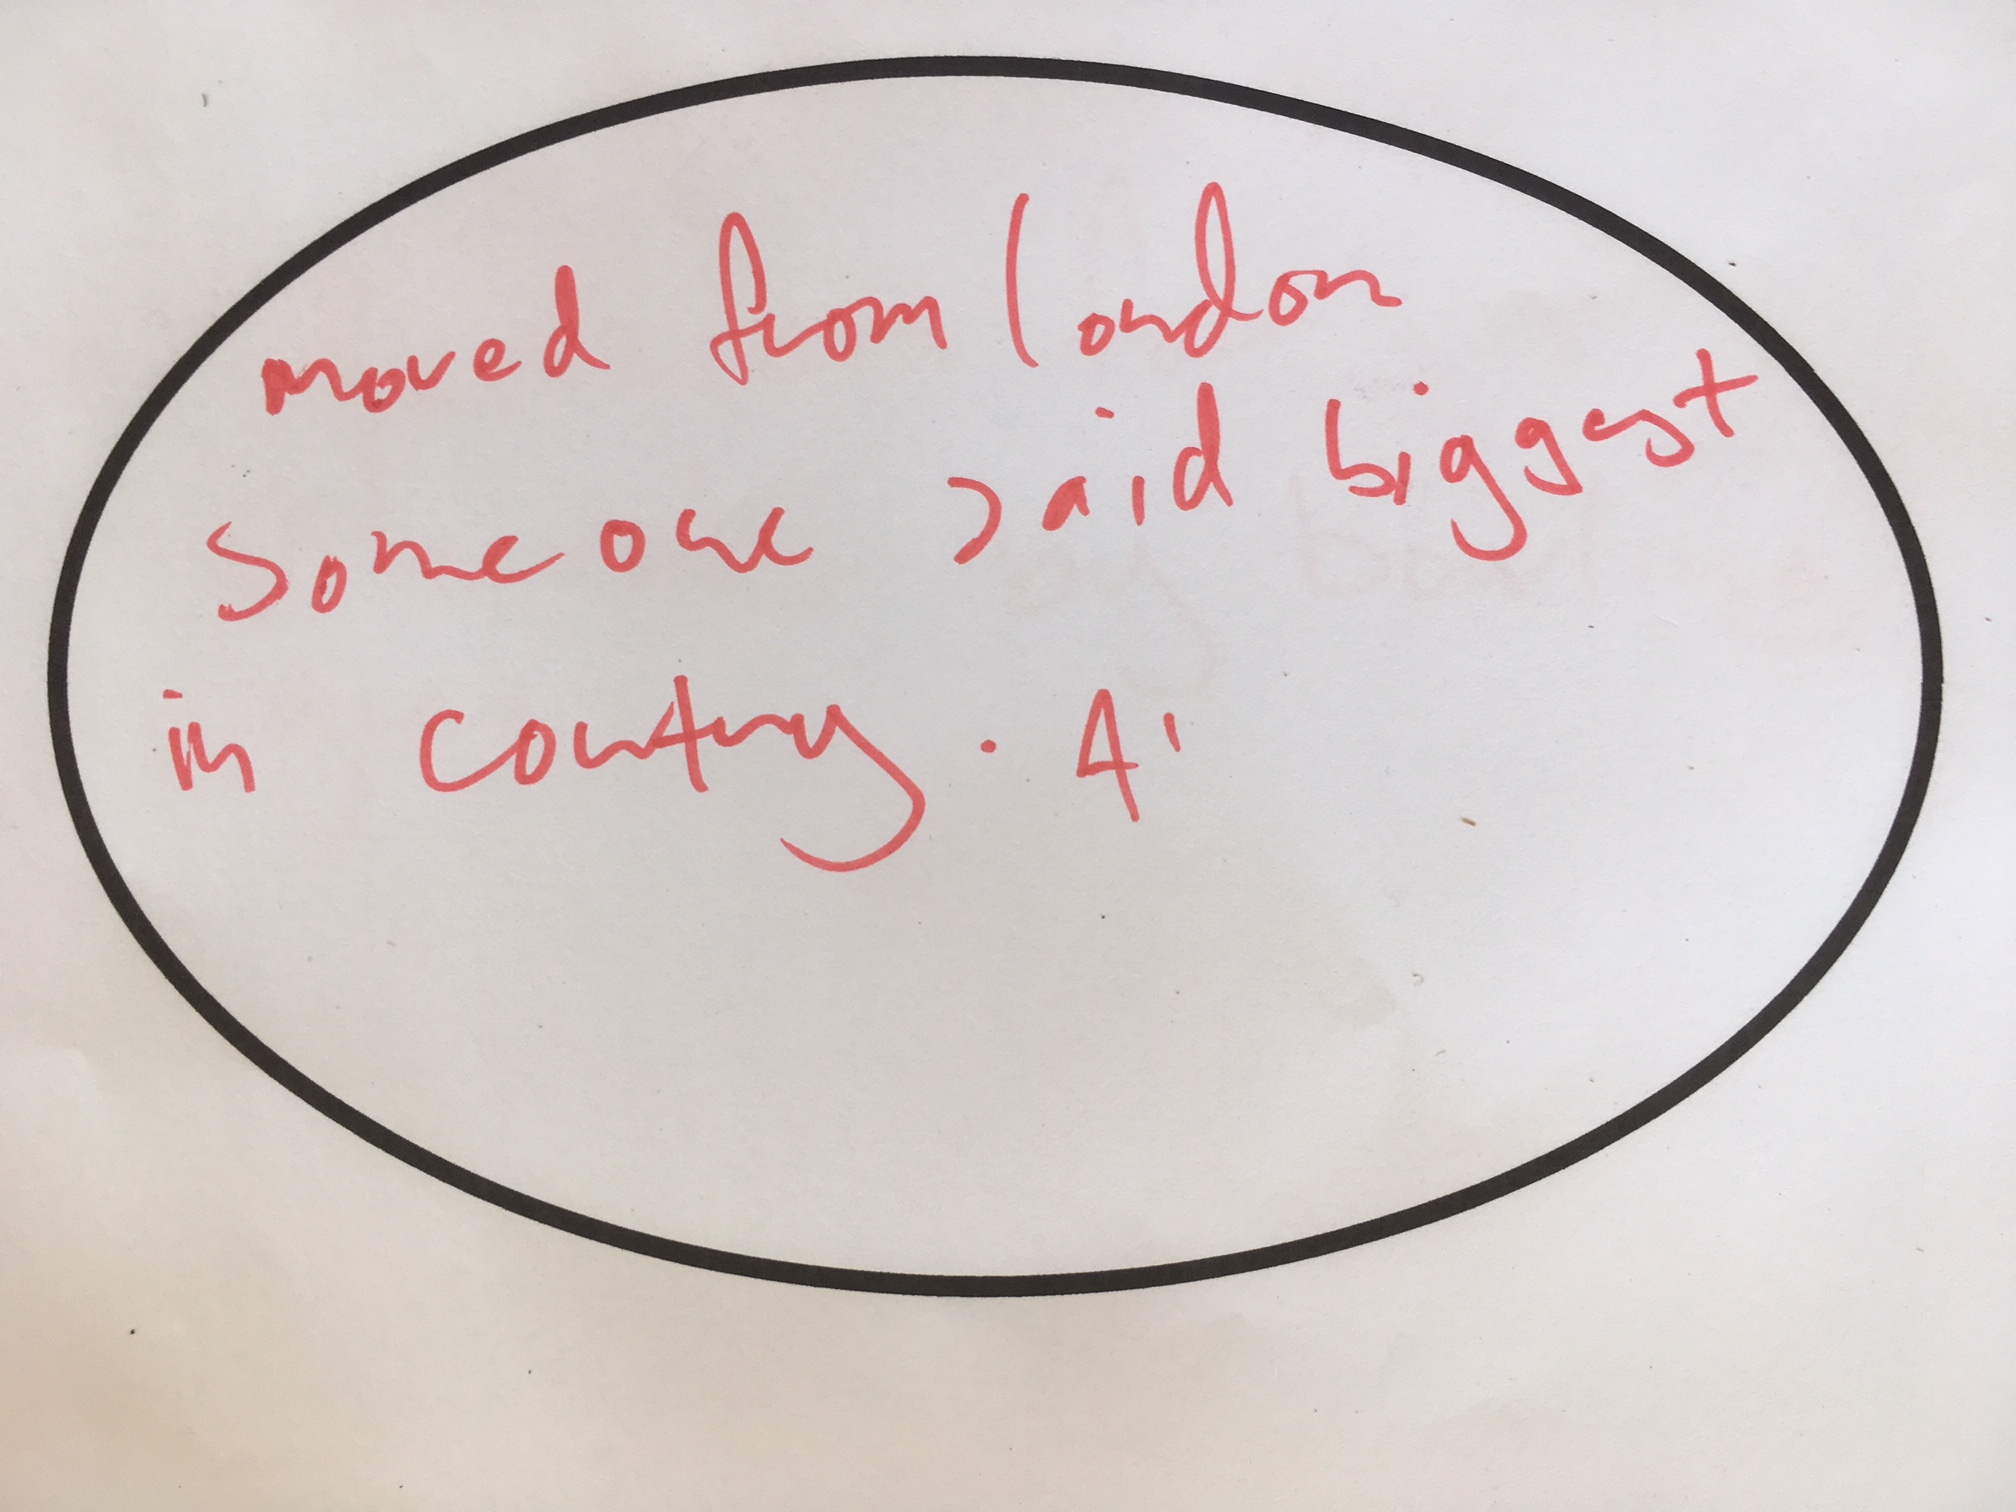 moved from london
someone said biggest
in country. 4'